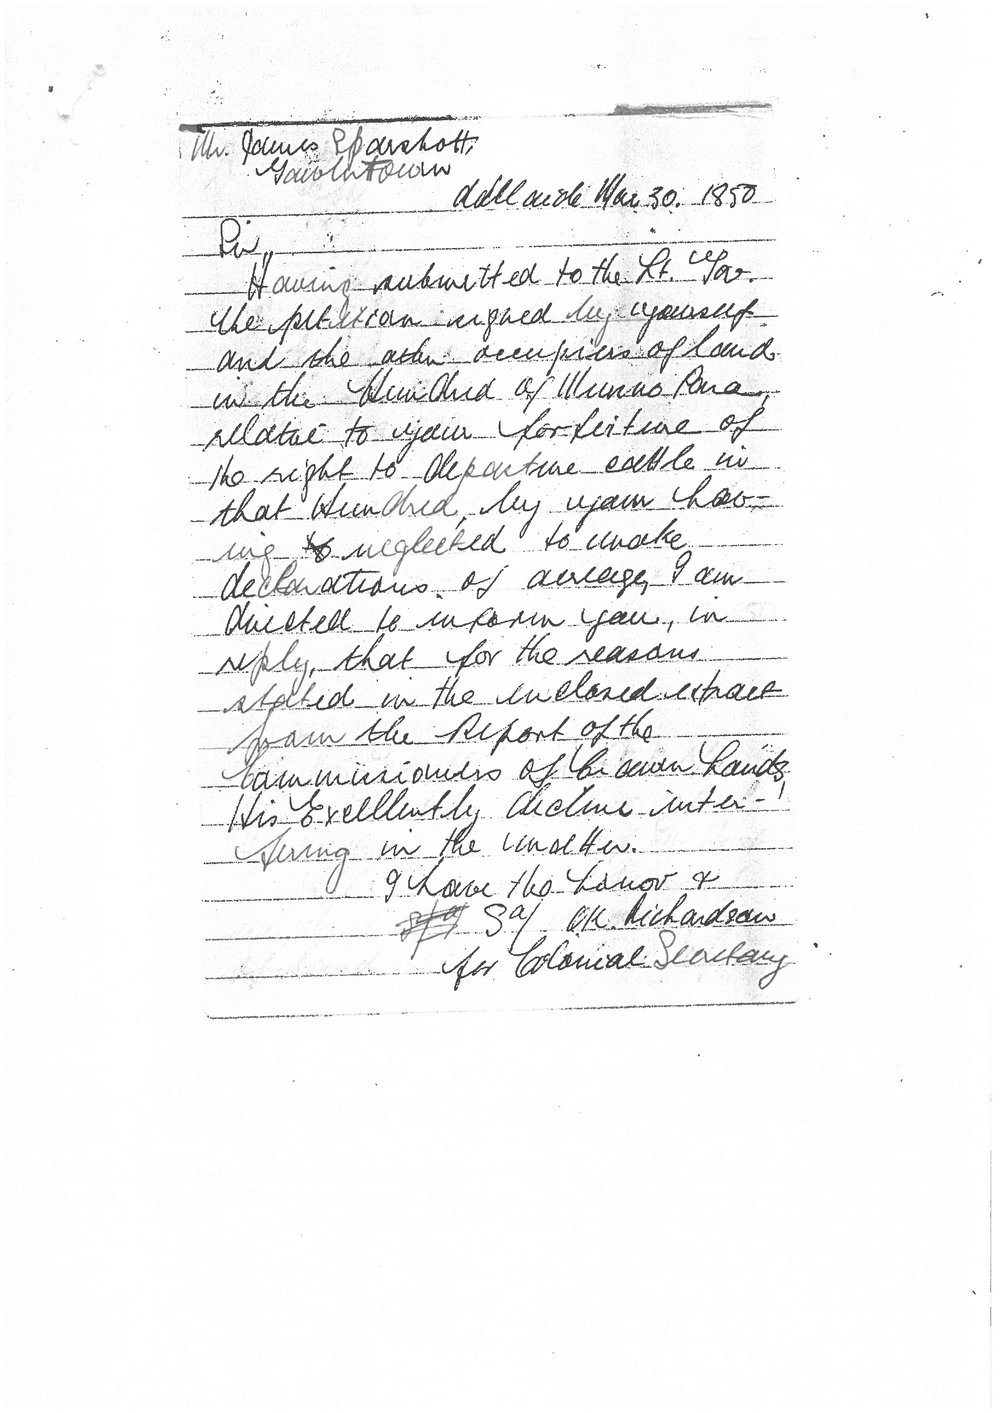 Mr. James Sparshott,
Gawlertown
Adelaide Mar 30. 1850
Sir,,
Having submitted to the Lt. Gov.
the petition signed by yourself
and the other occupiers of land
in the Hundred of Munno Para,
relative to your forfeiture of
the right to depasture cattle in
that Hundred, by your hav-
ing to neglected to make
declarations of acreage, I am
directed to inform you, in
reply, that for the reasons
stated in the enclosed extract
from the Report of the
Commissioners of Crown Lands,
His Excellently decline inter-
fering in the matter.
I have the honor &
Sd/ Richardson
for Colonial Secretary